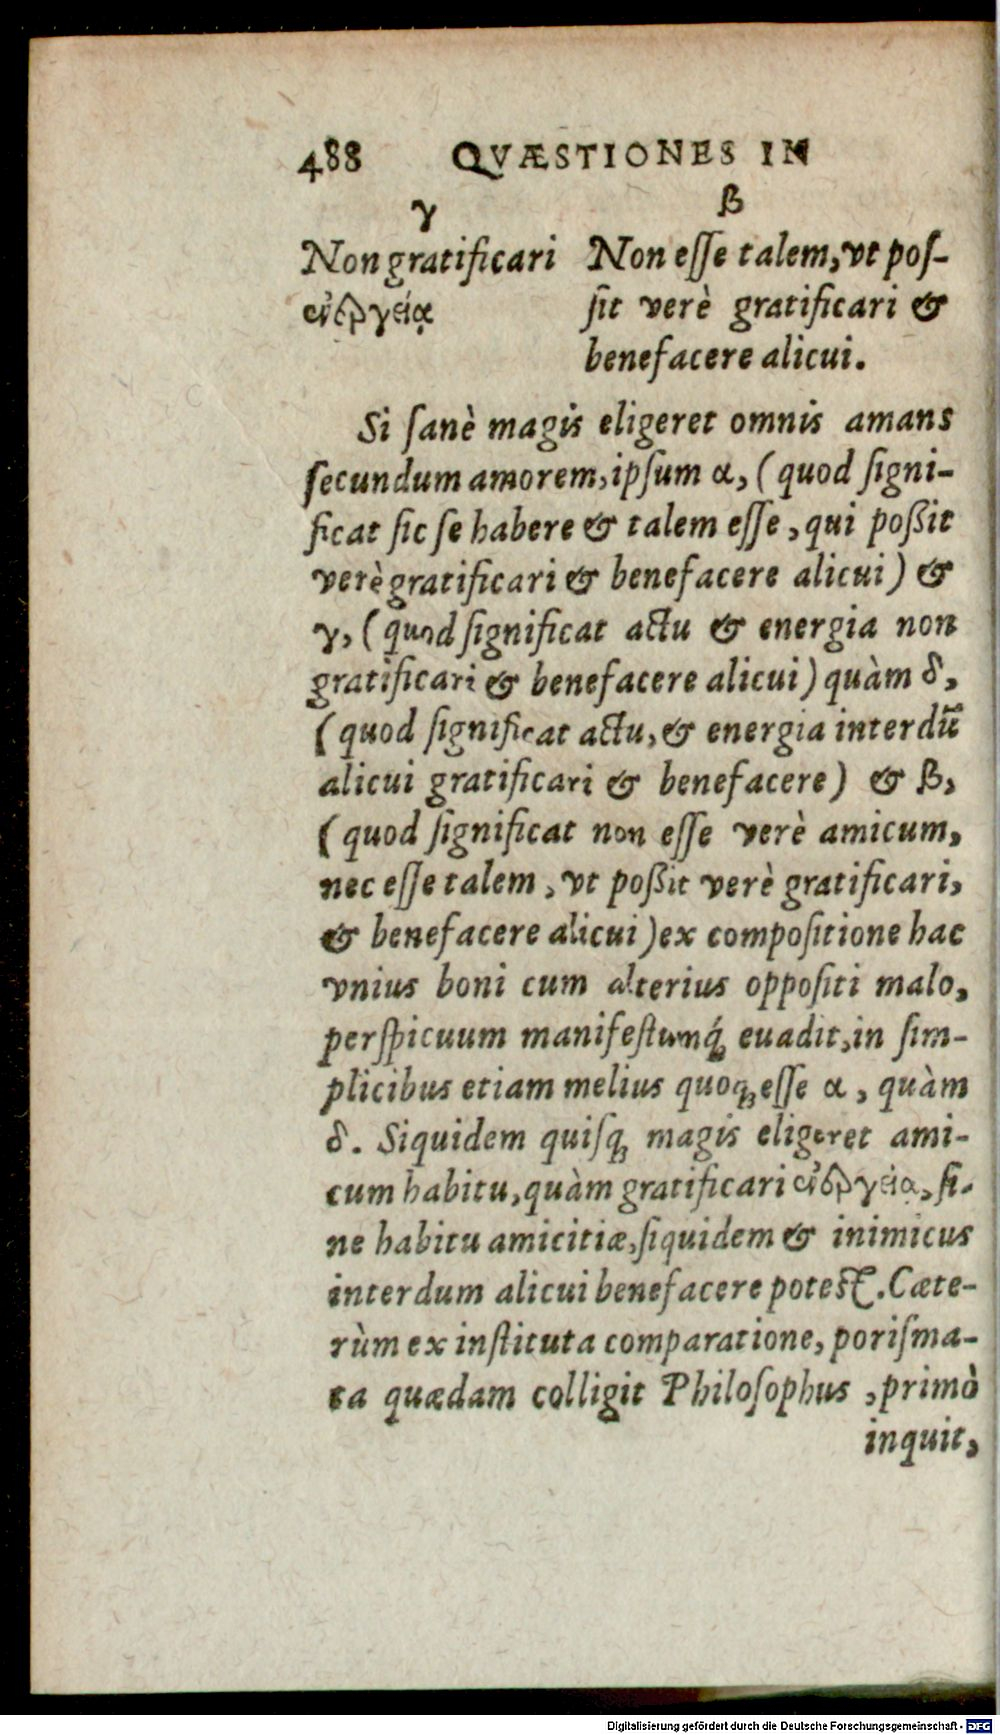 488 QVÆSTIONES IN
γ
Non gratificari
ἐνεργείᾳ
β
Non esse talem, vt pos-
sit verè gratificari &
benefacere alicui.
Si sanè magis eligeret omnis amans
secundum amorem, ipsum α, (quod signi-
ficat sic se habere & talem esse, qui poßit
verè gratificari & benefacere alicui) &
γ, (quod significat actu & energia non
gratificari & benefacere alicui) quàm δ,
(quod significat actu, & energia interdũ
alicui gratificari & benefacere) & β,
(quod significat non esse verè amicum,
nec esse talem, vt poßit verè gratificari,
& benefacere alicui) ex compositione hac
vnius boni cum alterius oppositi malo,
perspicuum manifestumq́; euadit, in sim-
plicibus etiam melius quoq; esse α, quàm
δ. Siquidem quisq; magis eligeret ami-
cum habitu, quàm gratificari ἐνεργείᾳ, si-
ne habitu amicitiæ, siquidem & inimicus
interdum alicui benefacere potest. Cæte-
rùm ex instituta comparatione, porisma-
ta quædam colligit Philosophus, primò
inquit,
Digitalisierung gefördert durch die Deutsche Forschungsgemeinschaft - DFG